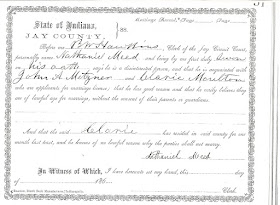 State of Indiana,
JAY COUNTY,
SS.
Before me Clerk of the Jay Circuit Court,
personally came Nathaniel Meed and being by me first duly sworn
on his oath says he is a disinterested person, and that he is acquainted with
John A. Metzner and Clarie Moulton
who are applicants for marriage license; that he has good reason and that he verily believes they
are of lawful age for marriage, without the consent of their parents or guardians.
And that the said Clarie has resided in said county for one
month last past, and he knows of no lawful reason why the parties shall not marry.
Nathaniel Meed
In Witness of Which, I have hereunto set my hand, this day
of 18
Clerk.